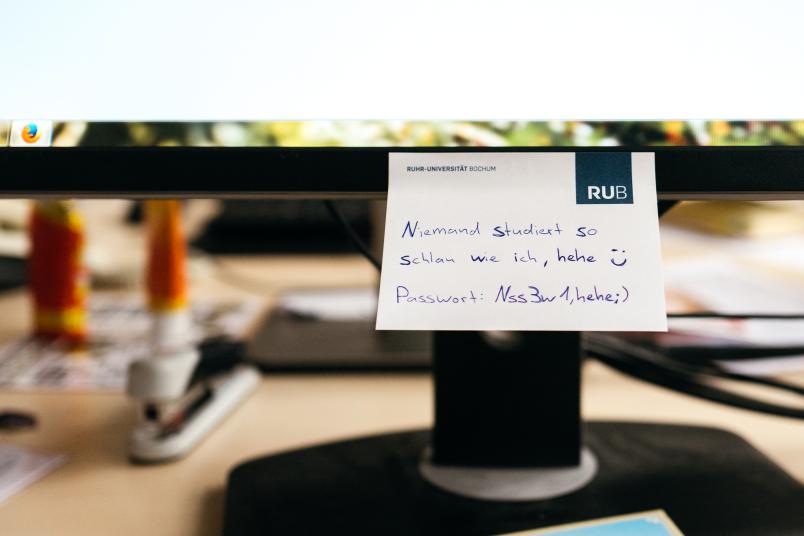 RUHR-UNIVERSITÄT BOCHUM
RUB
Niemand studiert so
schlau wie ich, hehe :)
Passwort: Nss3w1,hehe;)